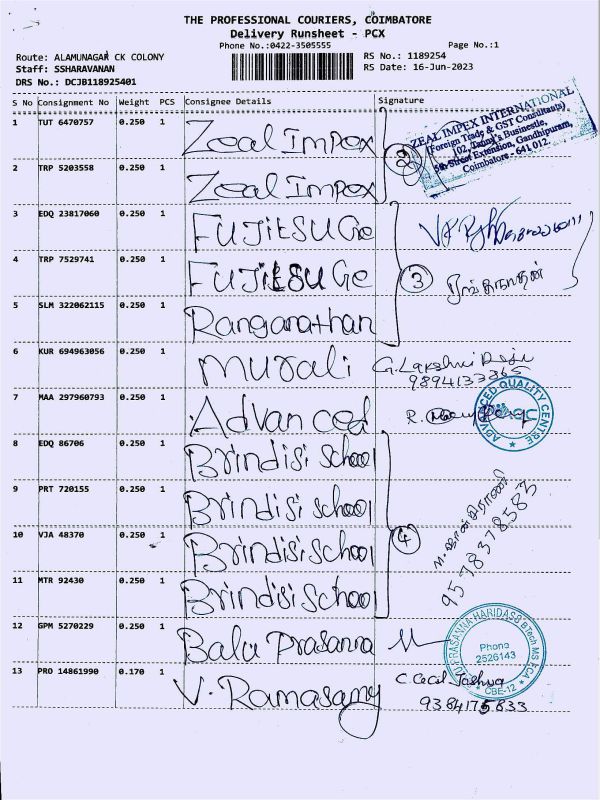 THE PROFESSIONAL COURIERS, COIMBATORE
Delivery Runsheet - PCX
Phone No.:0422-3505555
Page No.:1
Route: ALAMUNAGAR CK COLONY
Staff: SSHARAVANAN
DRS No.: DCJB118925401
RS No.: 1189254
RS Date: 16-Jun-2023
S No Consignment No Weight PCS Consignee Details Signature
1 TUT 6470757 0.250 1 Zeal Impex
ZEAL IMPEX INTERNATIONAL
(Foreign Trade & GST Consultants)
102, Business,
5th Street Extension, Gandhipuram,
Coimbatore - 641 012.
2 TRP 5203558 0.250 1 Zeal Impex
2
3 EDQ 23817060 0.250 1 FUJITSU Ge
4 TRP 7529741 0.250 1 FUJITSU Ge
3 ரங்கநாதன்
5 SLM 322062115 0.250 1 Ranganathan
6 KUR 694963056 0.250 1 Murali G. Lakshmi
9894133365
7 MAA 297960793 0.250 1 Advanced R.
ADVANCED QUALITY CENTRE
8 EDQ 86706 0.250 1 Brindisi School
9 PRT 720155 0.250 1 Brindisi School
10 VJA 48370 0.250 1 Brindisi School
4
9578378583
11 MTR 92430 0.250 1 Brindisi School
12 GPM 5270229 0.250 1 Balu Prasanna
PRASANNA HARIDASS BTech MS FCA
Phone
2526143
CBE-12
13 PRO 14861990 0.170 1 V. Ramasamy C. Cecil Joshua
9384175833